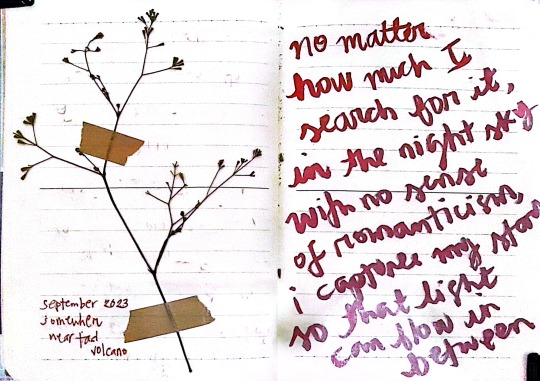 september 2023
somewhen
near fad
volcano
no matter
how much I
search for it,
in the night sky
with no sense
of romanticism,
i capture my star
so that light
can flow in
between